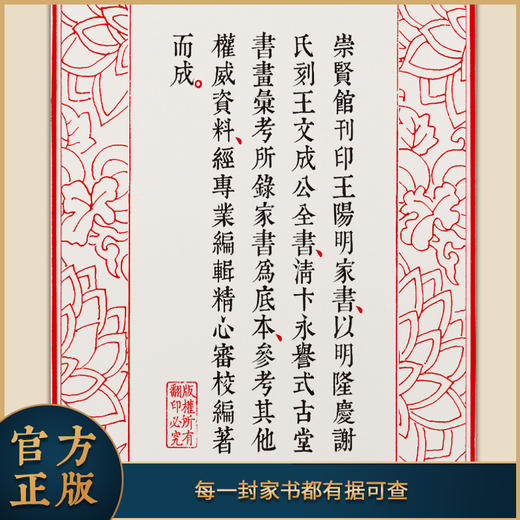 崇賢館刊印王陽明家書、以明隆慶謝
氏刻王文成公全書、清卞永譽式古堂
書畫彙考所錄家書為底本、參考其他
權威資料、經專業編輯精心審校編著
而成。
版權所有
翻印必究
官方
正版
每一封家书都有据可查